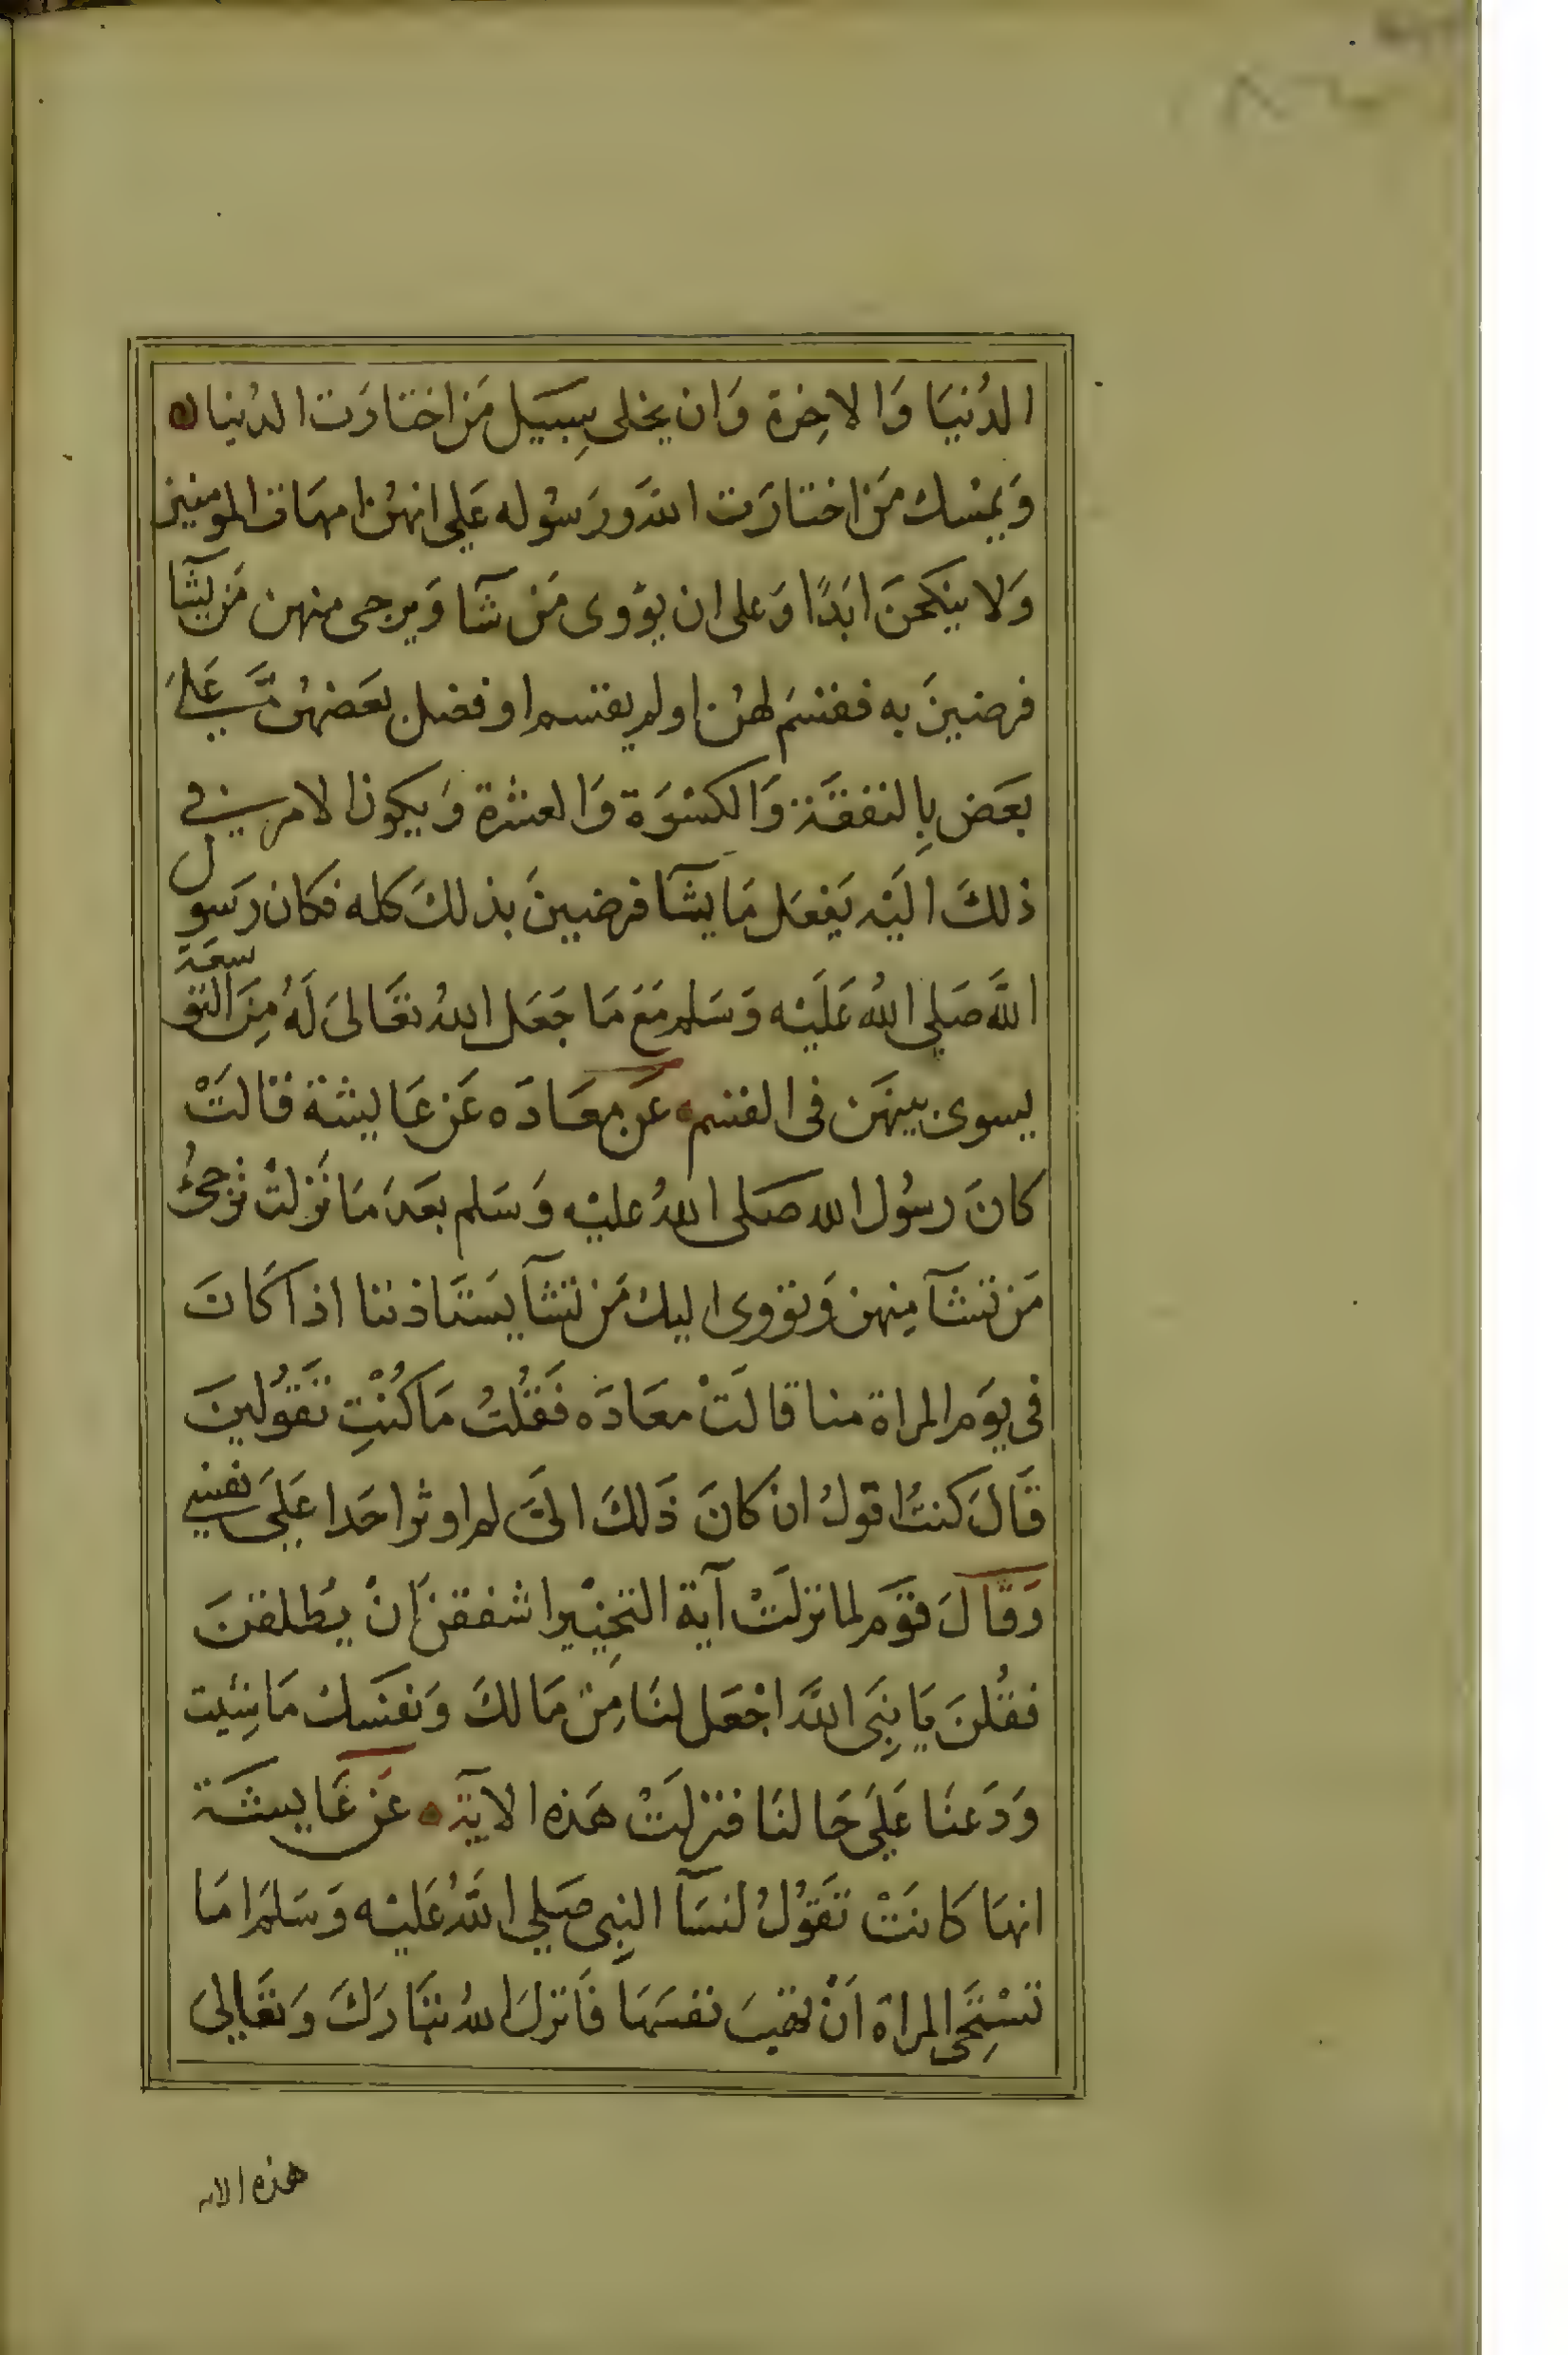 الدُنيَا وَالاخِرة وَان يخلى سِبيَل مَن اختارَت الدُنيا
وَيمسْك مَن اختارَت اللَّه وَرَسُوله عَلى انهُن امهَات المومنين
وَلا ينكحنَ ابَدًا وَعلى ان يؤوى مَن شآا وَيرجى منهن مَن يشآا
فرضينَ به فقسَم لهُن او لم يقسم او فضل بعَضهُن عَلَى
بعَض بِالنفقَة وَالكسْوَة وَالعشْرة وَيكون الامر في
ذلكَ اليَه يَفعَل مَا يشآا فرضيينَ بذلكَ كله فكان رَسول
اللَّه صَلى اللهُ عَليْه وَسَلم مَعَ مَا جَعَل اللهُ تعَالىَ لَهُ مِنَ التوسعَة
يسوى بينهَن فى القسم عَن معَادَه عَن عَايشة قالَتْ
كانَ رسُول الله صَلى اللهُ عليْه وَسَلم بعَدَ مَا نَزلتْ تُرجئُ
مَن تشَآا مِنهن وَتؤوى اليك مَن تشآا يَستَاذننا اذا كَانَ
فى يوَم المراة منا قالَتْ معَادَه فَقُلتُ مَا كُنْتِ تَقوُلينَ
قَالَ كنتُ اقولُ ان كانَ ذَلكَ الىَّ لم اوثر احَدا عَلىَ نفسي
وَقالَ قوَم لما نزلَتْ آية التخِيْير اشفقنَ انْ يُطلقنَ
فقُلنَ يَا نبَى اللَّه اجْعَل لنَا مِن مَالكَ وَنفسَك مَا شِئيت
وَدَعنَا عَلىَ حَالنَا فنزلَتْ هَذه الايَة عَن عَايشَة
انهَا كَانَتْ تَقوُلُ لنسَآا النبِى صَلى اللَّهُ عَليْه وَسَلم امَا
تسْتِحَى المراة اَنْ تهَبَ نفسَهَا فَانزلَ اللهُ تبَارَكَ وَتعَالىَ
هذه الايه